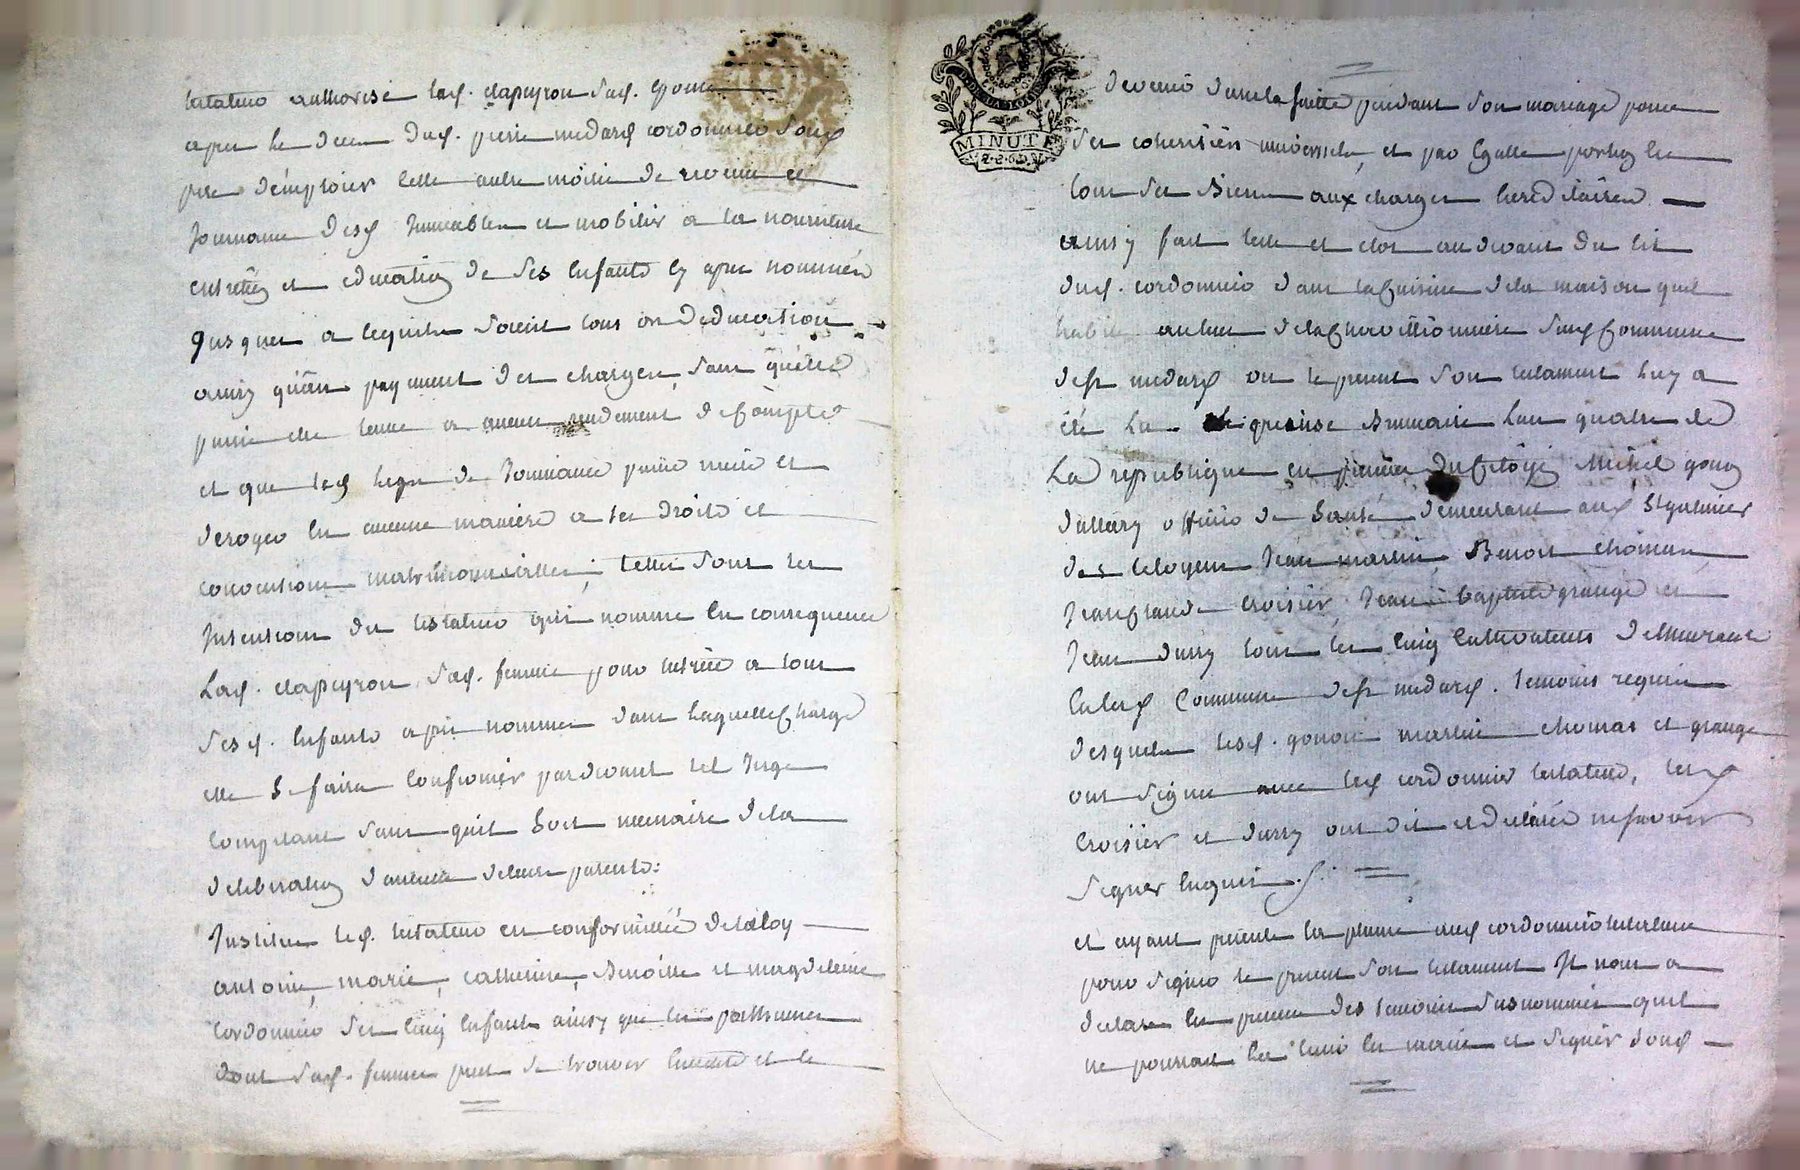 testateur authorise lad. clapeyron sad. Epouse
apres le deces dud. pierre medard cordonnier sond.
pere d'emploier cette autre moitie de revenu et
Jouissance desd. Immeubles et mobilier a la nourriture
entretien et education de ses Enfants Cy apres nommés
Jusques a ce qu'ils soient tous en Education
ainsy qu'au payement des charges, sans qu'elle
puisse etre tenue a aucun rendement de Compte
et que led. legs de Jouissance puisse nuire et
deroger En aucune maniere a ses droits et
conventions matrimonialles; telles sont les
Intentions du testateur qui nomme En consequence
Lad. clapeyron, sad. femme pour tutrice a tous
sesd. Enfants apres nommés dans laquelle Charge
elle se faira Confirmer pardevant tel Juge
Competant sans qu'il soit necessaire de la
deliberation d'aucuns de leurs parents:
Institue led. testateur en conformitté de la loy
antoine, marie, catherine, Benoitte et magdeleine
Cordonnier ses Cinq Enfants ainsy que les posthumes
dont sad. femme peut se trouver Enceinte et le
devenir dans la suitte pendant son mariage pour
ses coheritiers universels, et par Egalle portion En
tous ses Biens aux charges hereditaires
ainsy fait leu et clos au devant du lit
dud. cordonnier dans la Cuisine de la maison quil
habite au lieu de la Chavillionniere susd. Commune
de st medard ou le present son testament luy a
été Lu le quinse Brumaire Lan quatre de
La republique en presence du Citoyen Michel gonon
dallery officier de Santé demeurant aud. St galmier
des Citoyens Jean martin, Benoit chomas
Jean Claude Croisier Jean baptiste grange et
Jean dussy tous les Cinq Cultivateurs demeurant
En lad. Commune de st medard. temoins requis
desquels lesd. gonon martin chomas et grange
ont signé avec led. cordonnier testateur, lesd.
Croisier et dussy ont dit et declaré ne savoir
signer Enquis
et ayant presenté la plume aud. cordonnier testateur
pour signer le present son testament Il nous a
declaré En presence des temoins susnommés quil
ne pouvait la tenir En main et signer dond.
MINUTE